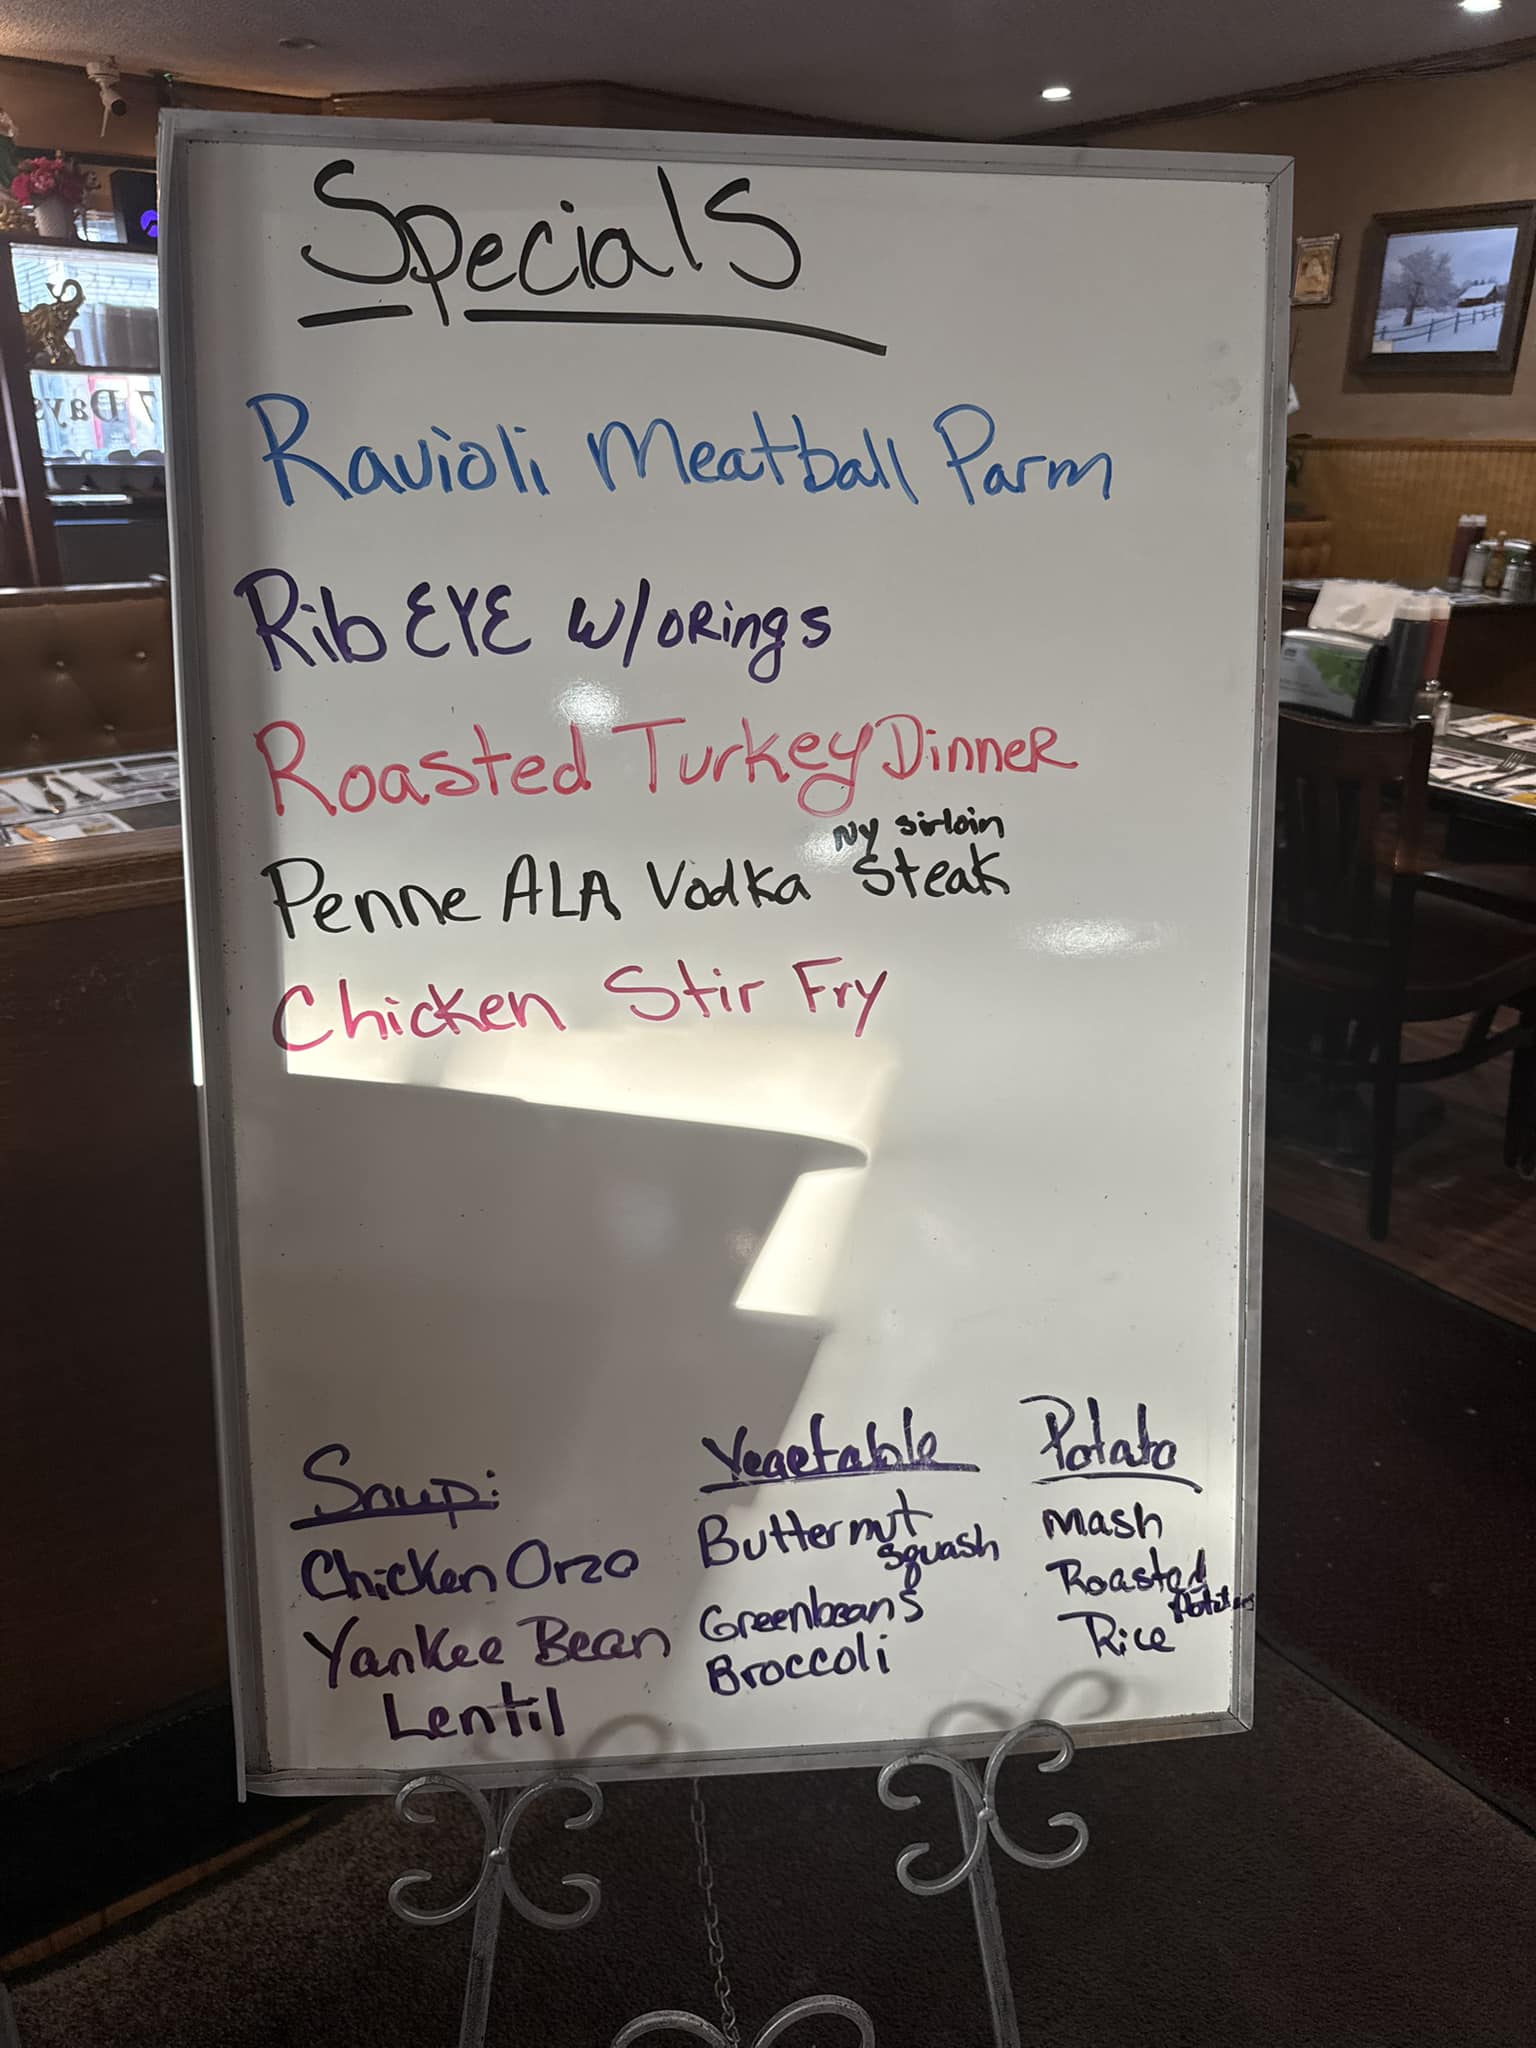 Specials
Ravioli Meatball Parm
Rib EYE w/ORings
Roasted Turkey Dinner
NY sirloin
Penne ALA Vodka Steak
Chicken Stir Fry
Soup:
Chicken Orzo
Yankee Bean
Lentil
Vegetable
Butternut
Squash
Greenbeans
Broccoli
Potato
Mash
Roasted
Potatoes
Rice
7 Days